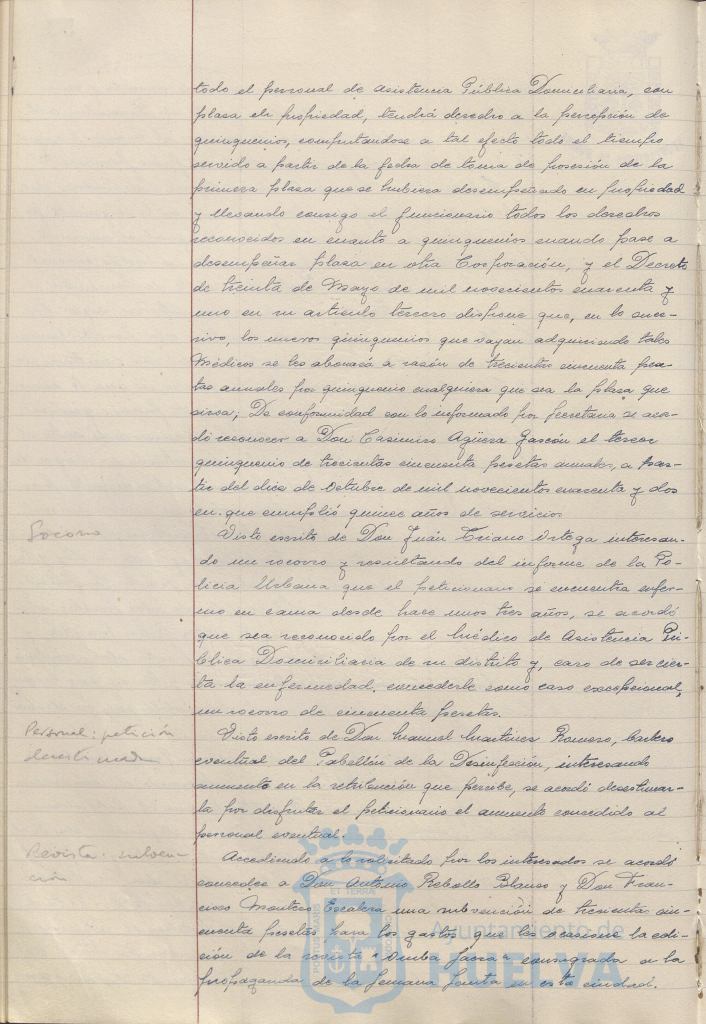 todo el personal de Asistencia Pública Domiciliaria, con
plaza en propiedad, tendrá derecho a la percepción de
quinquenios, computandose a tal efecto todo el tiempo
servido a partir de la fecha de toma de posesión de la
primera plaza que se hubiera desempeñado en propiedad
y llevando consigo el funcionario todos los derechos
reconocidos en cuanto a quinquenios cuando pase a
desempeñar plaza en otra Corporación, y el Decreto
de treinta de Mayo de mil novecientos cuarenta y
uno en su articulo tercero dispone que, en lo suce-
sivo, los nuevos quinquenios que vayan adquiriendo tales
Médicos se les abonará a razón de trecientas cincuenta pese-
tas anuales por quinquenio cualquiera que sea la plaza que
sirva; De conformidad con lo informado por Secretaria se acor-
dó reconocer a Don Casimiro Agüera Gascón el tercer
quinquenio de trecientas cincuenta pesetas anuales, a par-
tir del dice de Octubre de mil novecientos cuarenta y dos
en que cumplió quince años de servicios
Socorro
Visto escrito de Don Juán Triano Ortega interesan-
do un socorro y resultando del informe de la Po-
licia Urbana que el peticionario se encuentra enfer-
mo en cama desde hace unos tres años, se acordó
que sea reconocido por el Médico de Asistencia Pú-
blica Domiciliaria de su distrito y, caso de ser cier-
ta la enfermedad, concederle como caso excepcional,
un socorro de cincuenta pesetas.
Personal: petición
desestimada
Visto escrito de Don Manuel Martinez Romero,
eventual del Pabellón de la Desinfeción, interesando
aumento en la retribución que percibe, se acordó desestimar-
la por disfrutar el peticionario el aumento concedido al
personal eventual.
Revista. subven-
ción
Accediendo a lo solicitado por los interesados se acordó
conceder a Don Antonio Rebollo Blanco y Don Fran-
cisco Montero Escalera una subvención de trecientas cin-
cuenta pesetas para los gastos que les ocasione la edi-
ción de la revista " Onuba Sacra " consagrada a la
propaganda de la Semana Santa en esta ciudad.
Ayuntamiento de
HUELVA
PORTUS MARIS
ET TERRÆ
CUSTODIA